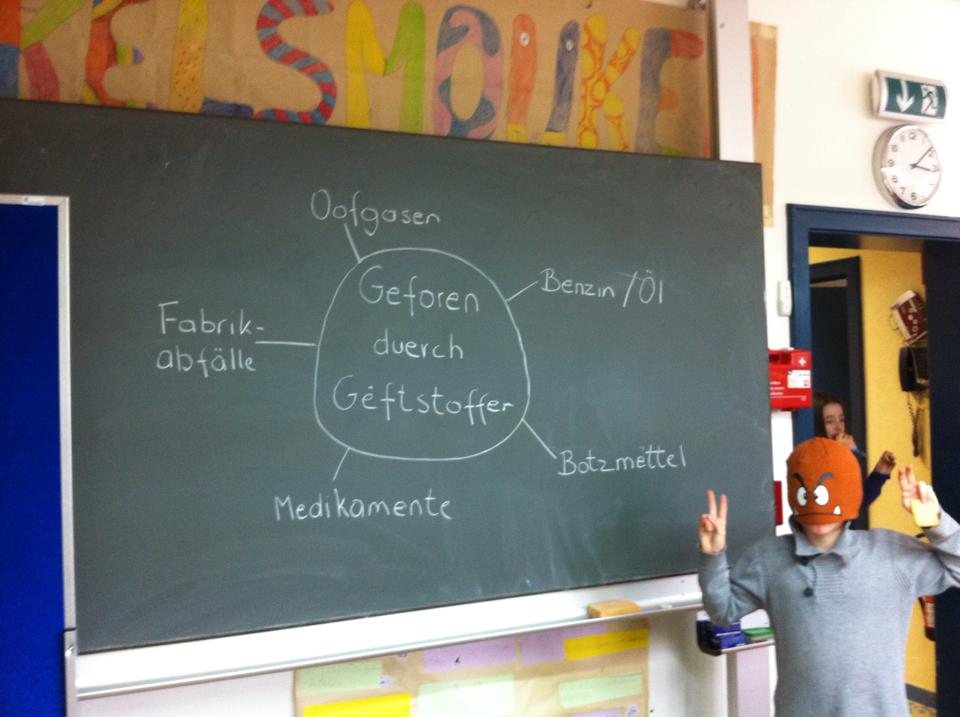 KELSMOUKE
Oofgasen
Geforen
duerch
Gëftstoffer
Benzin / Öl
Fabrik-
abfälle
Botzmëttel
Medikamente